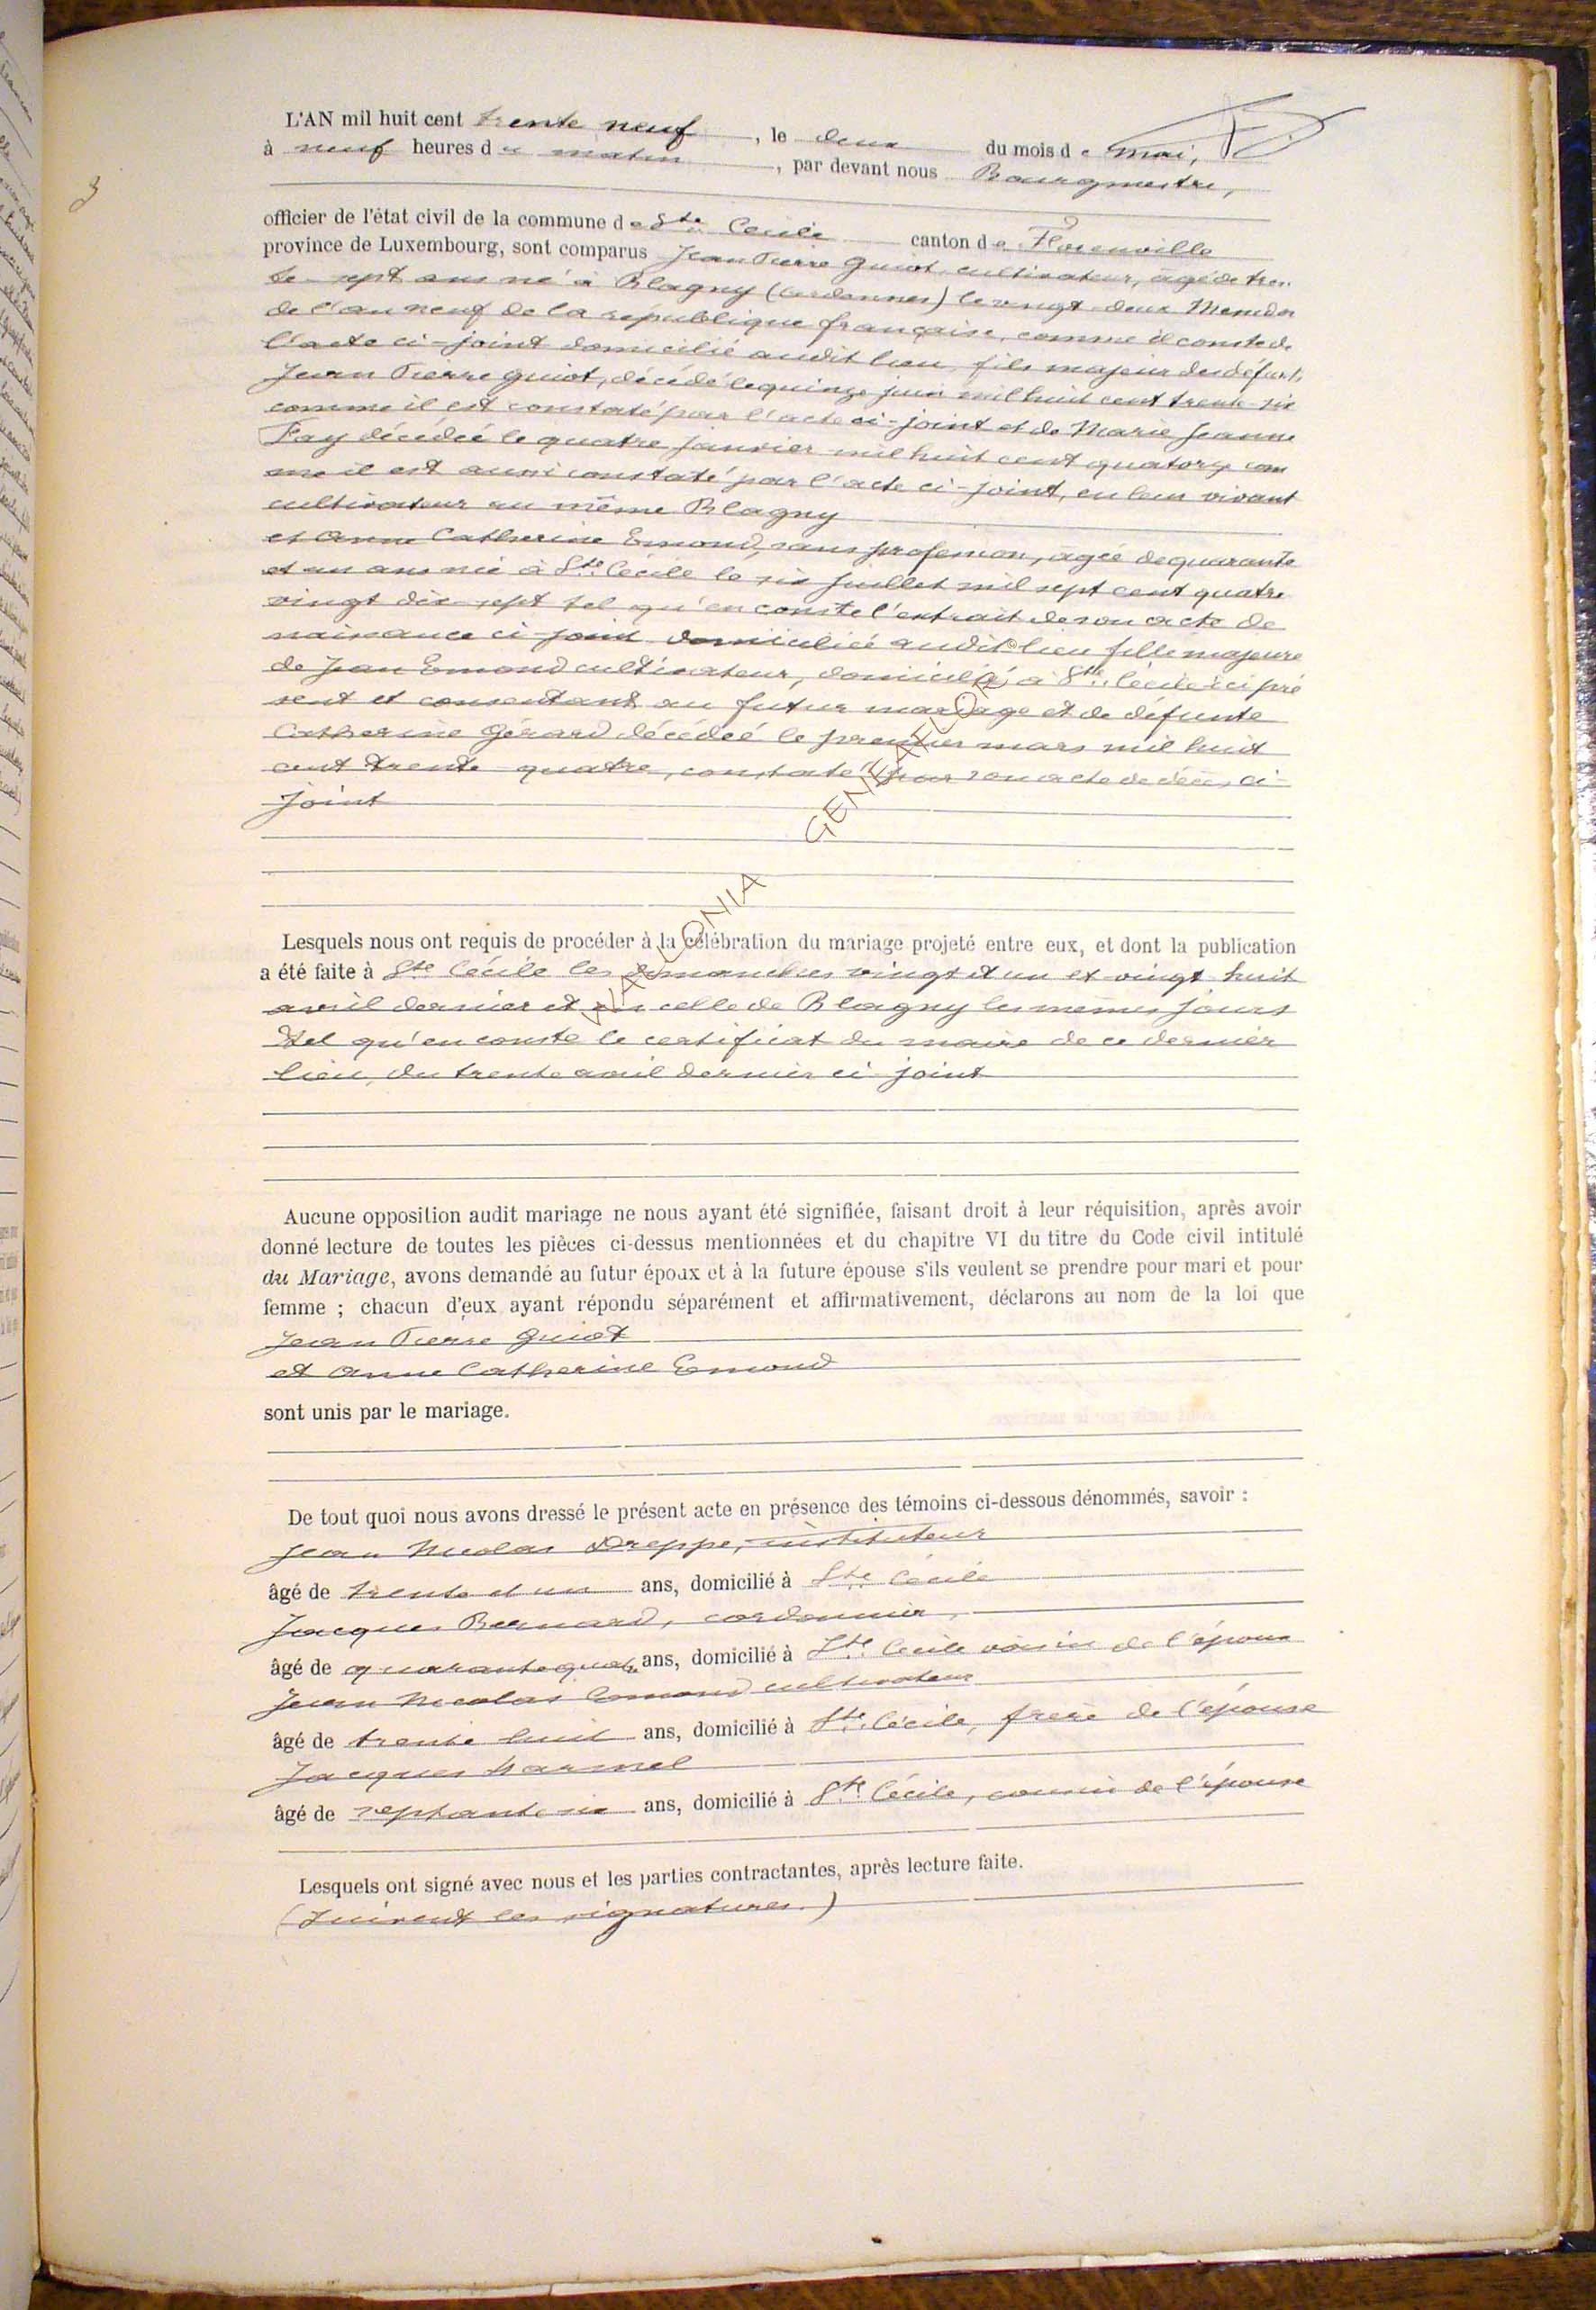 L'AN mil huit cent trente neuf, le deux du mois de mai,
à neuf heures du matin, par devant nous Bourgmestre,
3
officier de l'état civil de la commune de Ste Cécile canton de Florenville
province de Luxembourg, sont comparus Jean Pierre Guiot, cultivateur, âgé de tren
te-sept ans né à Blagny (Ardennes) le vingt-deux Messidor
de l'an neuf de la république française, comme il conste de
l'acte ci-joint domicilié audit lieu, fils majeur des défunts
Jean Pierre Guiot, décédé le quinze juin mil huit cent trente-six
comme il est constaté par l'acte ci-joint et de Marie Jeanne
Fay décédée le quatre janvier mil huit cent quatorze com
me il est aussi constaté par l'acte ci-joint, en leur vivant
cultivateur au même Blagny
et Anne Catherine Emond, sans profession, âgée de quarante
et un ans née à Ste Cécile le six juillet mil sept cent quatre
vingt dix-sept tel qu'en conste l'extrait de son acte de
naissance ci-joint domiciliée audit lieu fille majeure
de Jean Emond cultivateur, domicilié à Ste Cécile ici pré
sent et consentant au futur mariage et de défunte
Catherine Gérard décédée le premier mars mil huit
cent trente-quatre, constaté par son acte de décès ci-
joint
WALLONIA GENEALOR
Lesquels nous ont requis de procéder à la célébration du mariage projeté entre eux, et dont la publication
a été faite à Ste Cécile les dimanches vingt et un et vingt huit
avril dernier et en celle de Blagny les mêmes jours
tel qu'en conste le certificat du maire de ce dernier
lieu, du trente avril dernier ci-joint
Aucune opposition audit mariage ne nous ayant été signifiée, faisant droit à leur réquisition, après avoir
donné lecture de toutes les pièces ci-dessus mentionnées et du chapitre VI du titre du Code civil intitulé
du Mariage, avons demandé au futur époux et à la future épouse s'ils veulent se prendre pour mari et pour
femme ; chacun d'eux ayant répondu séparément et affirmativement, déclarons au nom de la loi que
Jean Pierre Guiot
et Anne Catherine Emond
sont unis par le mariage.
De tout quoi nous avons dressé le présent acte en présence des témoins ci-dessous dénommés, savoir :
Jean Nicolas Dreppe, instituteur
âgé de trente et un ans, domicilié à Ste Cécile
Jacques Bernard, cordonnier,
âgé de quarante quatre ans, domicilié à Ste Cécile voisin de l'épouse
Jean Nicolas Emond cultivateur
âgé de trente huit ans, domicilié à Ste Cécile, frère de l'épouse
Jacques
âgé de septante six ans, domicilié à Ste Cécile, cousin de l'épouse
Lesquels ont signé avec nous et les parties contractantes, après lecture faite.
(Suivent les signatures.)